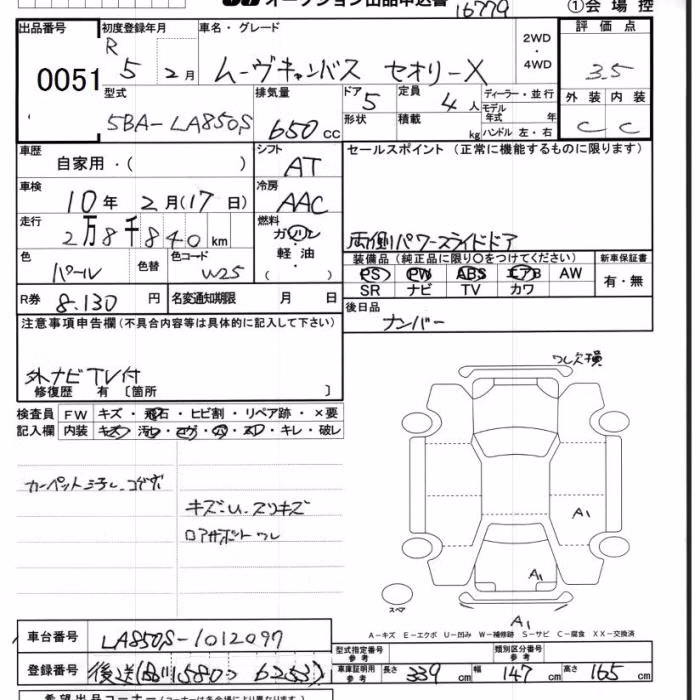 オークション出品申込書 16779 ①会場控
出品番号 0051
初度登録年月 R 5 2月
車名・グレード ムーヴキャンバス セオリーX
2WD・4WD
評価点 3.5
外装 内装
C C
型式 5BA-LA850S
排気量 650cc
ドア 5 定員 4人
ディーラー・並行
モデル年式 年
形状 積載 kg ハンドル 左・右
車歴 自家用・( )
シフト AT
セールスポイント (正常に機能するものに限ります)
両側パワースライドドア
車検 10年 2月(17日)
冷房 AAC
走行 2万8千840km
燃料 ガソリン・軽油 ( )
色 パール 色替 色コード W25
装備品 (純正品に限り○をつけてください) 新車保証書
PS PW ABS エアB AW 有・無
SR ナビ TV カワ
R券 8.130円 名変通知期限 月 日
後日品 ナンバー
注意事項申告欄(不具合内容等は具体的に記入して下さい)
外ナビTV付
修復歴 有 〔箇所 〕
検査員 FW キズ・飛石・ヒビ割・リペア跡・×要
記入欄 内装 キズ・汚 ・キレ・破レ
キズ・U、スリキズ
ロアサポート ワレ
ワレ欠損
A1
A1
A1
スペア
A-キズ E-エクボ U-凹み W-補修跡 S-サビ C-腐食 XX-交換済
車台番号 LA850S-1012097
登録番号 後送
型式指定番号 参考 類別区分番号 参考
車庫証明用 参考 長さ 339cm 幅 147cm 高さ 165cm
希望出品コーナー